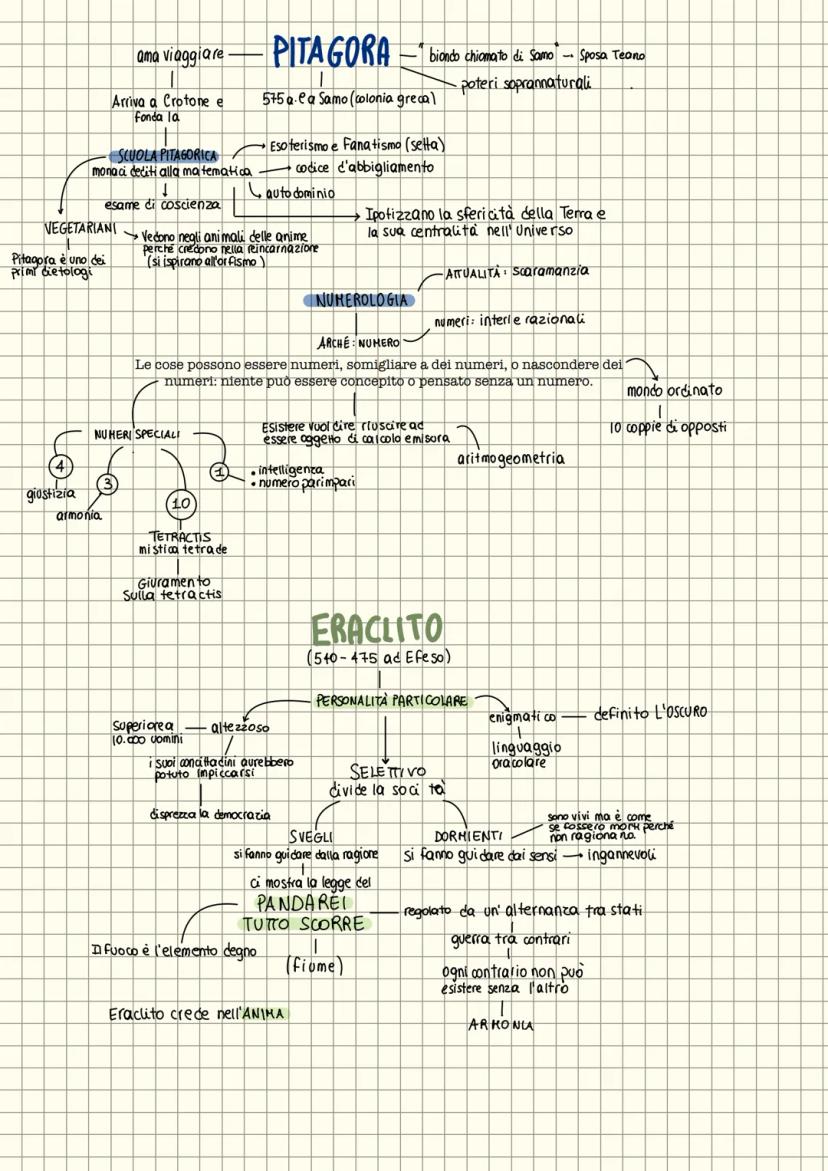 PITAGORA
ama viaggiare
"biondo chiomato di Samo" → Sposa Teano
poteri soprannaturali
575 a.C a Samo (colonia greca)
Arriva a Crotone e
fonda la
SCUOLA PITAGORICA
monaci dediti alla matematica
Esoterismo e Fanatismo (setta)
codice d'abbigliamento
autodominio
esame di coscienza
Ipotizzano la sfericità della Terra e
la sua centralità nell'Universo
VEGETARIANI
Vedono negli animali delle anime
perché credono nella reincarnazione
(si ispirano all'orfismo)
Pitagora è uno dei
primi dietologi
NUMEROLOGIA
ATTUALITÀ: scaramanzia
ARCHÉ: NUMERO
numeri: interi e razionali
Le cose possono essere numeri, somigliare a dei numeri, o nascondere dei
numeri: niente può essere concepito o pensato senza un numero.
mondo ordinato
10 coppie di opposti
Esistere vuol dire riuscire ad
essere oggetto di calcolo e misura
aritmogeometria
NUMERI SPECIALI
4
giustizia
3
armonia
10
TETRACTIS
mistica tetrade
Giuramento
sulla tetractis
1
• intelligenza
• numero parimpari
ERACLITO
(540-475 ad Efeso)
PERSONALITÀ PARTICOLARE
altezzoso
Superiore a
10.000 uomini
i suoi concittadini avrebbero
potuto impiccarsi
disprezza la democrazia
enigmatico
definito L'OSCURO
linguaggio
oracolare
SELETTIVO
divide la società
SVEGLI
si fanno guidare dalla ragione
DORMIENTI
si fanno guidare dai sensi → ingannevoli
sono vivi ma è come
se fossero morti perché
non ragionano
ci mostra la legge del
PANDAREI
TUTTO SCORRE
(fiume)
Il fuoco è l'elemento degno
regolato da un'alternanza tra stati
guerra tra contrari
ogni contrario non può
esistere senza l'altro
ARMONIA
Eraclito crede nell'ANIMA